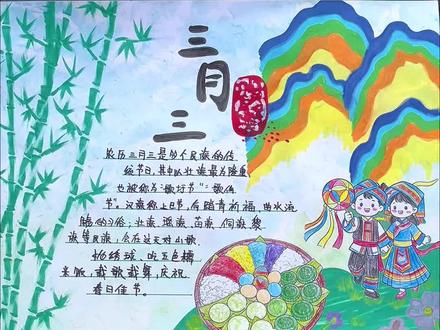 三月三
农历三月三是多个民族的传
统节日,其中以壮族最为隆重
也被称为"歌圩节""歌仙
节"。汉族称上巳节,有踏青祈福、曲水流
觞的习俗;壮族、瑶族、苗族、侗族、黎
族等民族,会在这天对山歌、
抛绣球、吃五色糯
米饭,载歌载舞,庆祝
春日佳节。